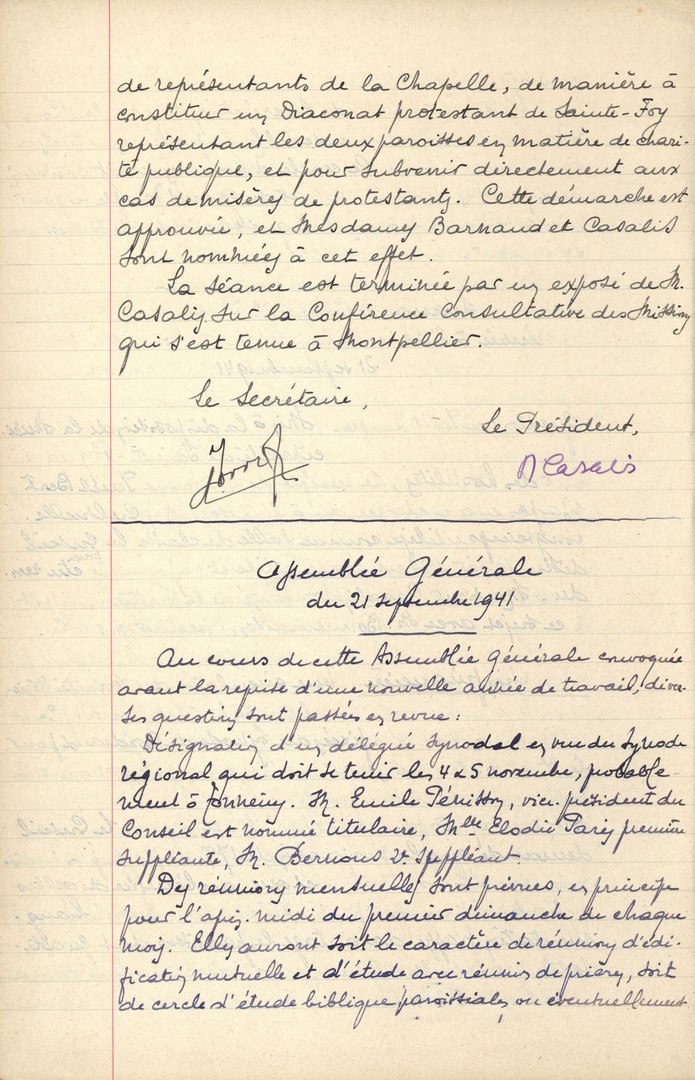 de représentants de la Chapelle, de manière à
constituer un Diaconat protestant de Sainte-Foy
représentant les deux paroisses en matière de chari-
té publique, et pour subvenir directement aux
cas de misères de protestants. Cette démarche est
approuvée, et Mesdames Barnaud et Casalis
sont nommées à cet effet.
La séance est terminée par un exposé de M.
Casalis sur la Conférence Consultative des Missions
qui s'est tenue à Montpellier.
Le Secrétaire,
Le Président,
Casalis
Assemblée Générale
du 21 septembre 1941
Au cours de cette Assemblée générale convoquée
avant la reprise d'une nouvelle année de travail, diver-
ses questions sont passées en revue:
Désignation d'un délégué synodal en vue du Synode
régional qui doit se tenir les 4 & 5 novembre, probable-
ment à Tonneins. M. Emile Périsson, vice-président du
Conseil est nommé titulaire, Melle Elodie Parès première
suppléante, M. Bernous 2e Suppléant.
Des réunions mensuelles sont prévues, en principe
pour l'après-midi du premier dimanche de chaque
mois. Elles auront soit le caractère de réunions d'édi-
fication mutuelle et d'étude avec réunis de prières, soit
de cercle d'étude biblique paroissiales, ou éventuellement